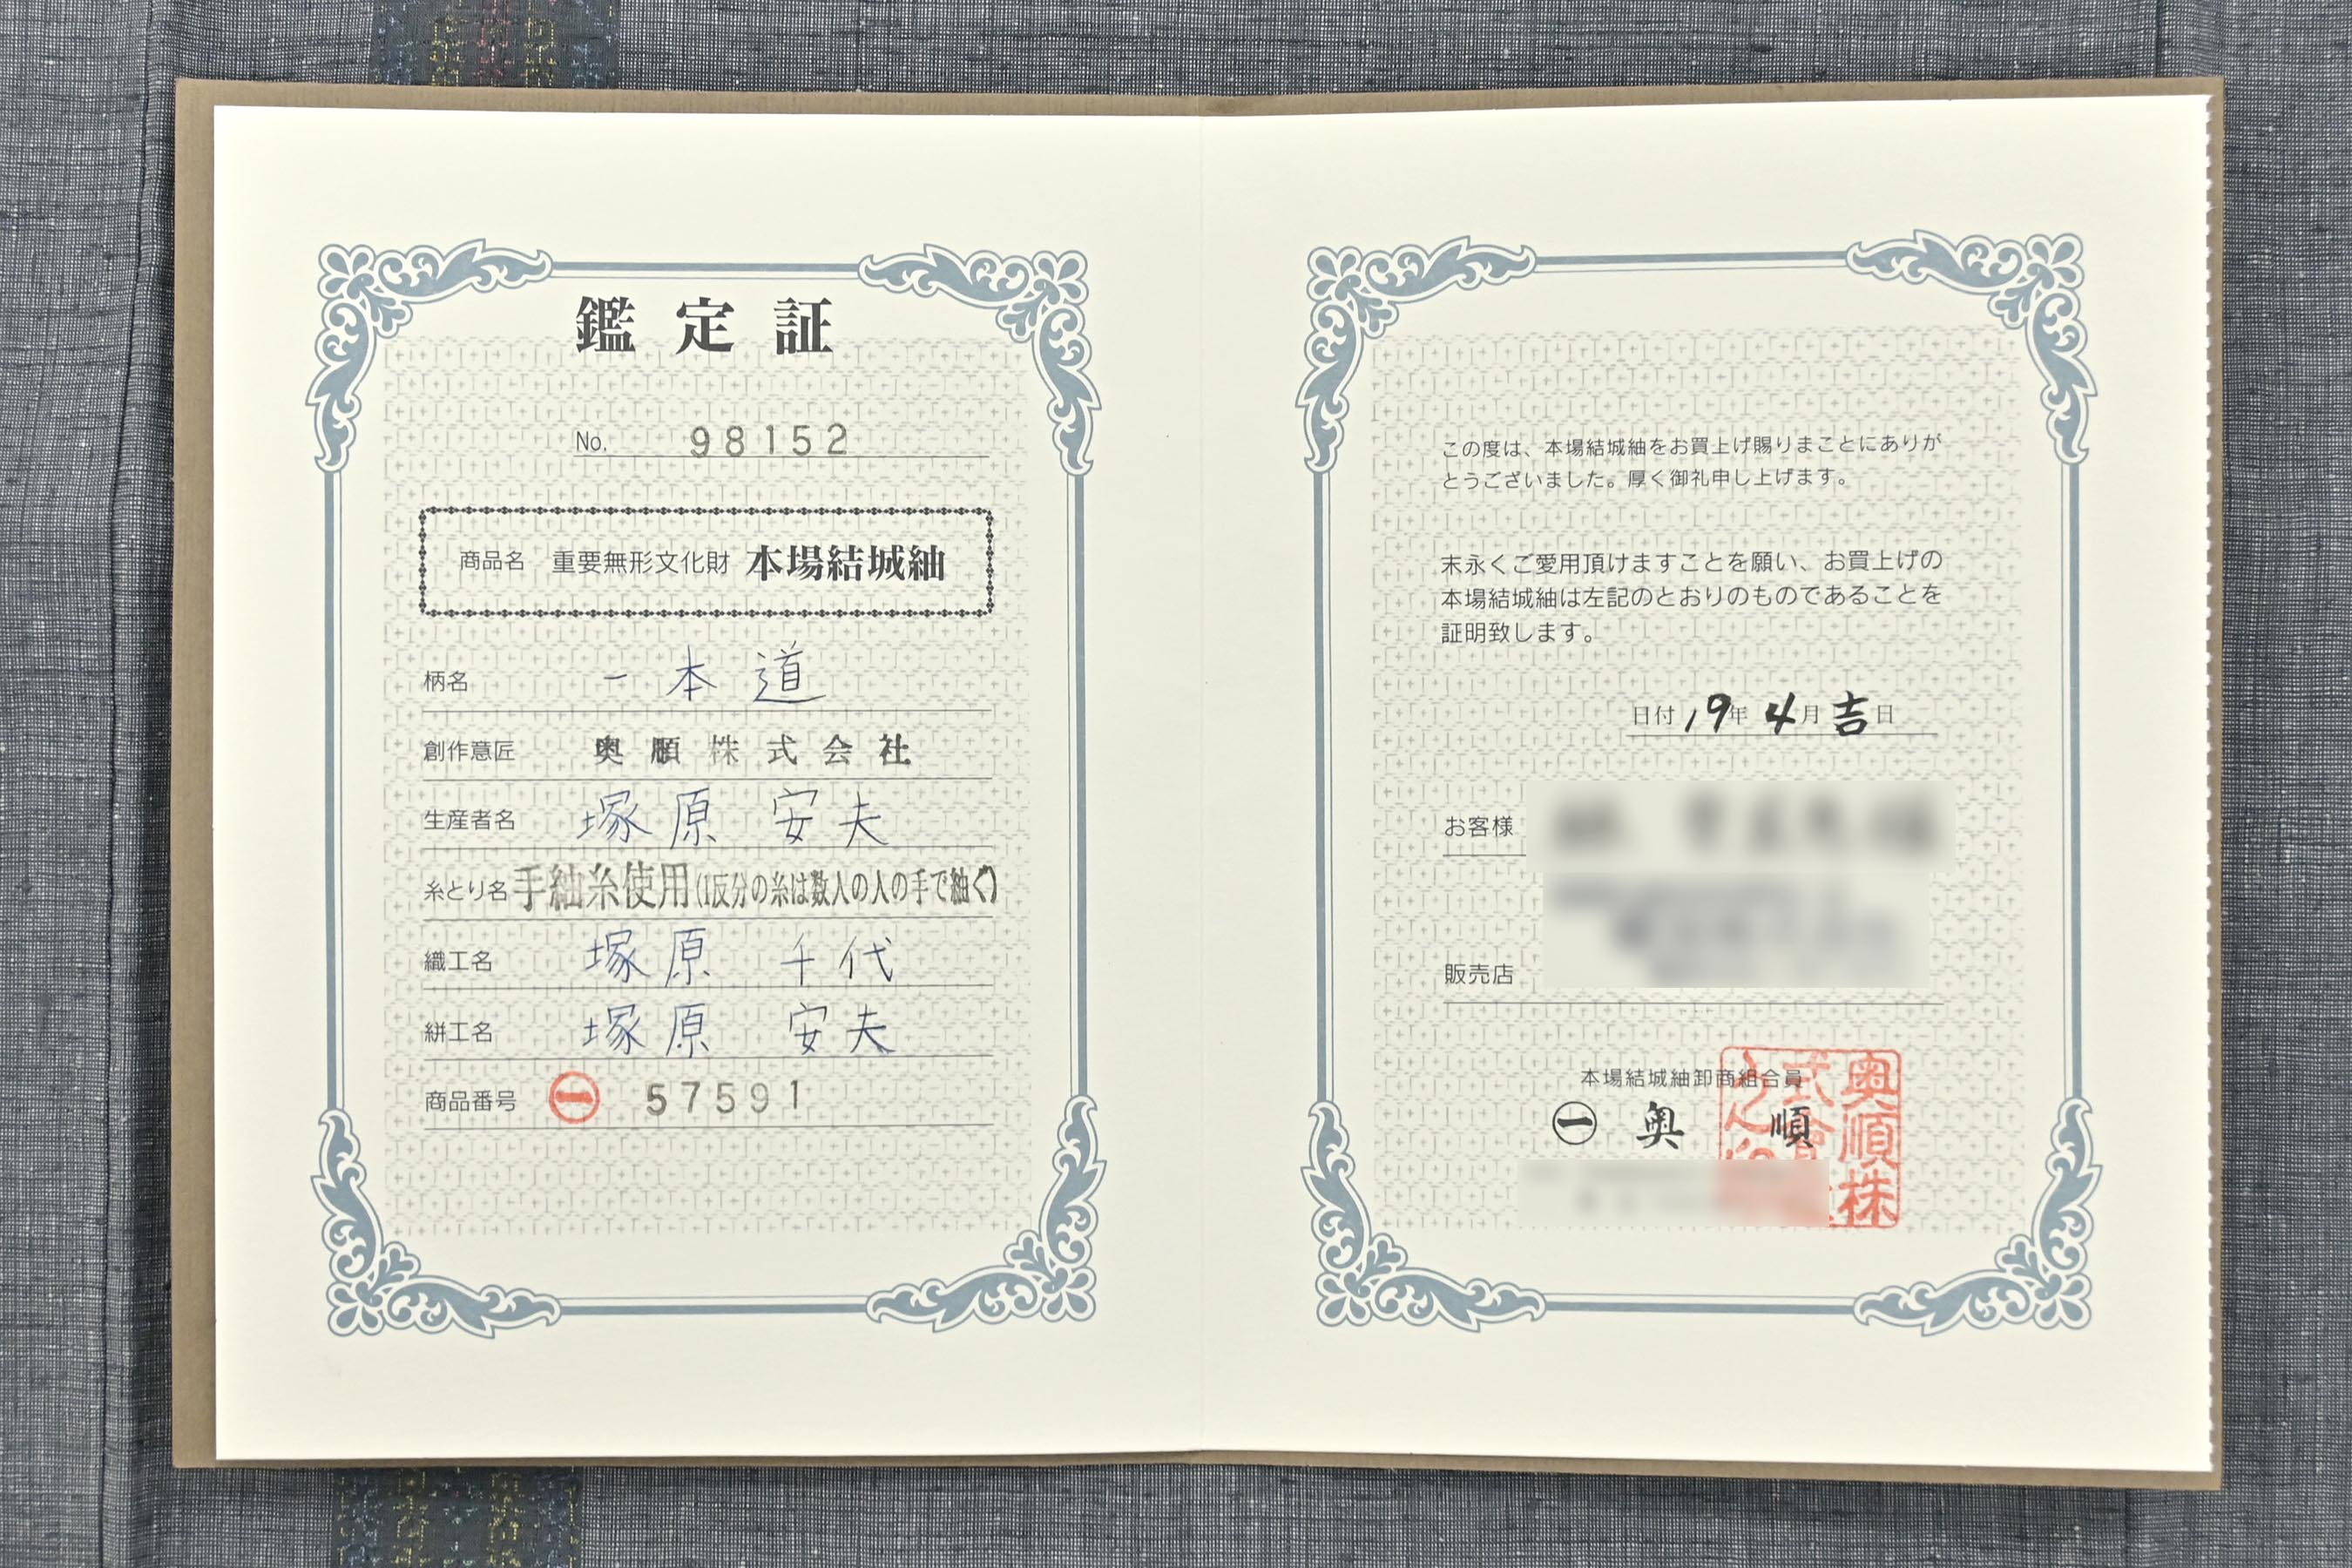 鑑定証
No. 98152
商品名 重要無形文化財 本場結城紬
柄名 一本道
創作意匠 奥順株式会社
生産者名 塚原 安夫
糸とり名 手紬糸使用(1反分の糸は数人の人の手で紬ぐ)
織工名 塚原 千代
絣工名 塚原 安夫
商品番号 ㊀ 57591
この度は、本場結城紬をお買上げ賜りまことにありが
とうございました。厚く御礼申し上げます。
末永くご愛用頂けますことを願い、お買上げの
本場結城紬は左記のとおりのものであることを
証明致します。
日付 19年 4月 吉日
お客様
販売店
本場結城紬卸商組合員
㊀ 奥 順
奥順株